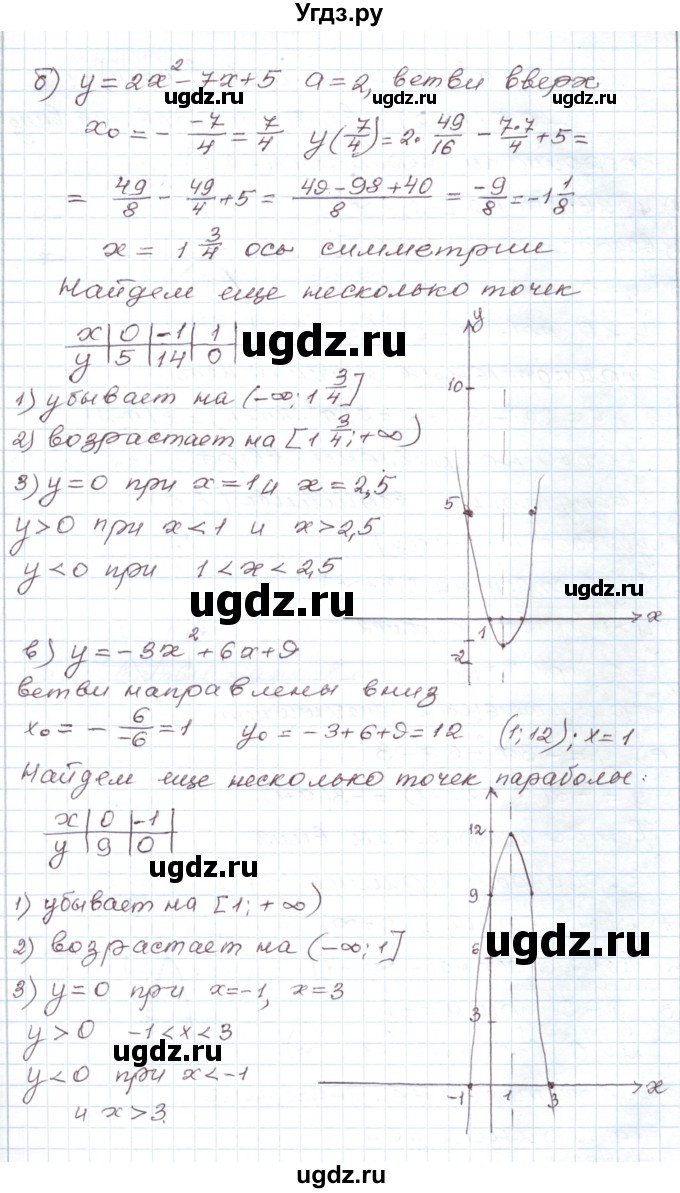 Угдз.ру
б) y = 2x² - 7x + 5  a = 2, ветви вверх
x₀ = - -7/4 = 7/4  y(7/4) = 2 · 49/16 - 7·7/4 + 5 =
= 49/8 - 49/4 + 5 = 49 - 98 + 40/8 = -9/8 = -1 1/8
x = 1 3/4 ось симметрии
Найдем еще несколько точек
x | 0 | -1 | 1
y | 5 | 14 | 0
1) убывает на (-∞; 1 3/4]
2) возрастает на [1 3/4; +∞)
3) y = 0 при x = 1 и x = 2,5
y > 0 при x < 1 и x > 2,5
y < 0 при 1 < x < 2,5
y
10
5
1
-2
x
в) y = -3x² + 6x + 9
ветви направлены вниз
x₀ = - 6/-6 = 1  y₀ = -3 + 6 + 9 = 12  (1; 12); x = 1
Найдем еще несколько точек параболы:
x | 0 | -1
y | 9 | 0
1) убывает на [1; +∞)
2) возрастает на (-∞; 1]
3) y = 0 при x = -1, x = 3
y > 0  -1 < x < 3
y < 0 при x < -1
и x > 3.
12
9
6
3
-1
1
3
x
ugdz.ru
ugdz.ru
ugdz.ru
ugdz.ru
ugdz.ru
ugdz.ru
ugdz.ru
ugdz.ru
ugdz.ru
ugdz.ru